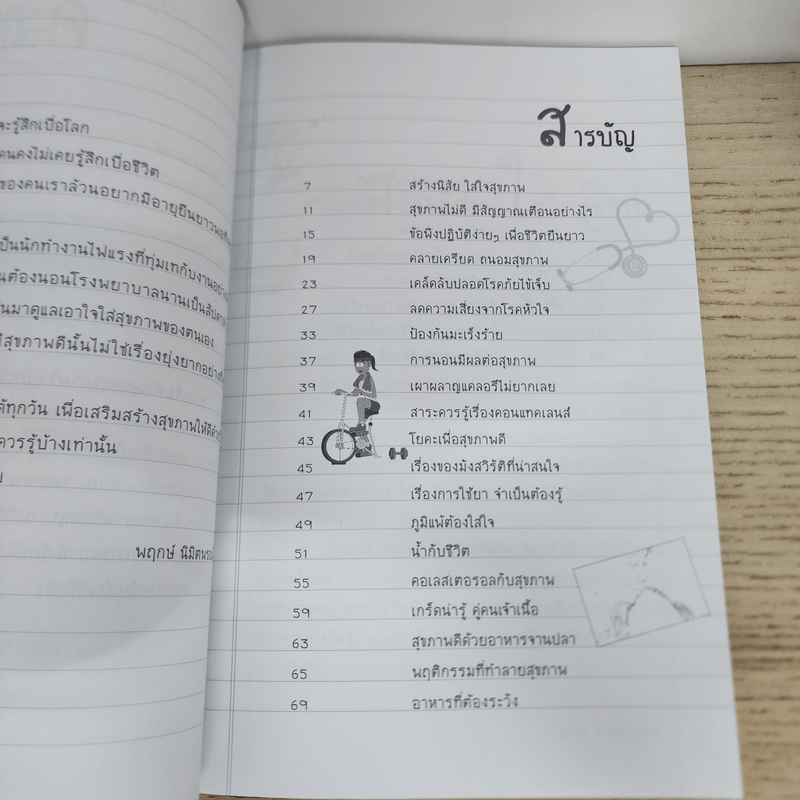 จะรู้สึกเบื่อโลก
คนคงไม่เคยรู้สึกเบื่อชีวิต
ของคนเราล้วนอยากมีอายุยืนยาว
เป็นนักทำงานไฟแรงที่ทุ่มเทกับงานอย่าง
ต้องนอนโรงพยาบาลนานเป็นสัปดาห์
มาดูแลเอาใจใส่สุขภาพของตนเอง
สุขภาพดีนั้นไม่ใช่เรื่องยุ่งยากอย่าง
ได้ทุกวัน เพื่อเสริมสร้างสุขภาพให้ดี
ควรรู้บ้างเท่านั้น
พฤกษ์ นิมิตพร
สารบัญ
7 สร้างนิสัย ใส่ใจสุขภาพ
11 สุขภาพไม่ดี มีสัญญาณเตือนอย่างไร
15 ข้อพึงปฏิบัติง่ายๆ เพื่อชีวิตยืนยาว
19 คลายเครียด ถนอมสุขภาพ
23 เคล็ดลับปลอดโรคภัยไข้เจ็บ
27 ลดความเสี่ยงจากโรคหัวใจ
33 ป้องกันมะเร็งร้าย
37 การนอนมีผลต่อสุขภาพ
39 เผาผลาญแคลอรีไม่ยากเลย
41 สาระควรรู้เรื่องคอนแทคเลนส์
43 โยคะเพื่อสุขภาพดี
45 เรื่องของมังสวิรัติที่น่าสนใจ
47 เรื่องการใช้ยา จำเป็นต้องรู้
49 ภูมิแพ้ต้องใส่ใจ
51 น้ำกับชีวิต
55 คอเลสเตอรอลกับสุขภาพ
59 เกร็ดน่ารู้ คู่คนเจ้าเนื้อ
63 สุขภาพดีด้วยอาหารจานปลา
65 พฤติกรรมที่ทำลายสุขภาพ
69 อาหารที่ต้องระวัง